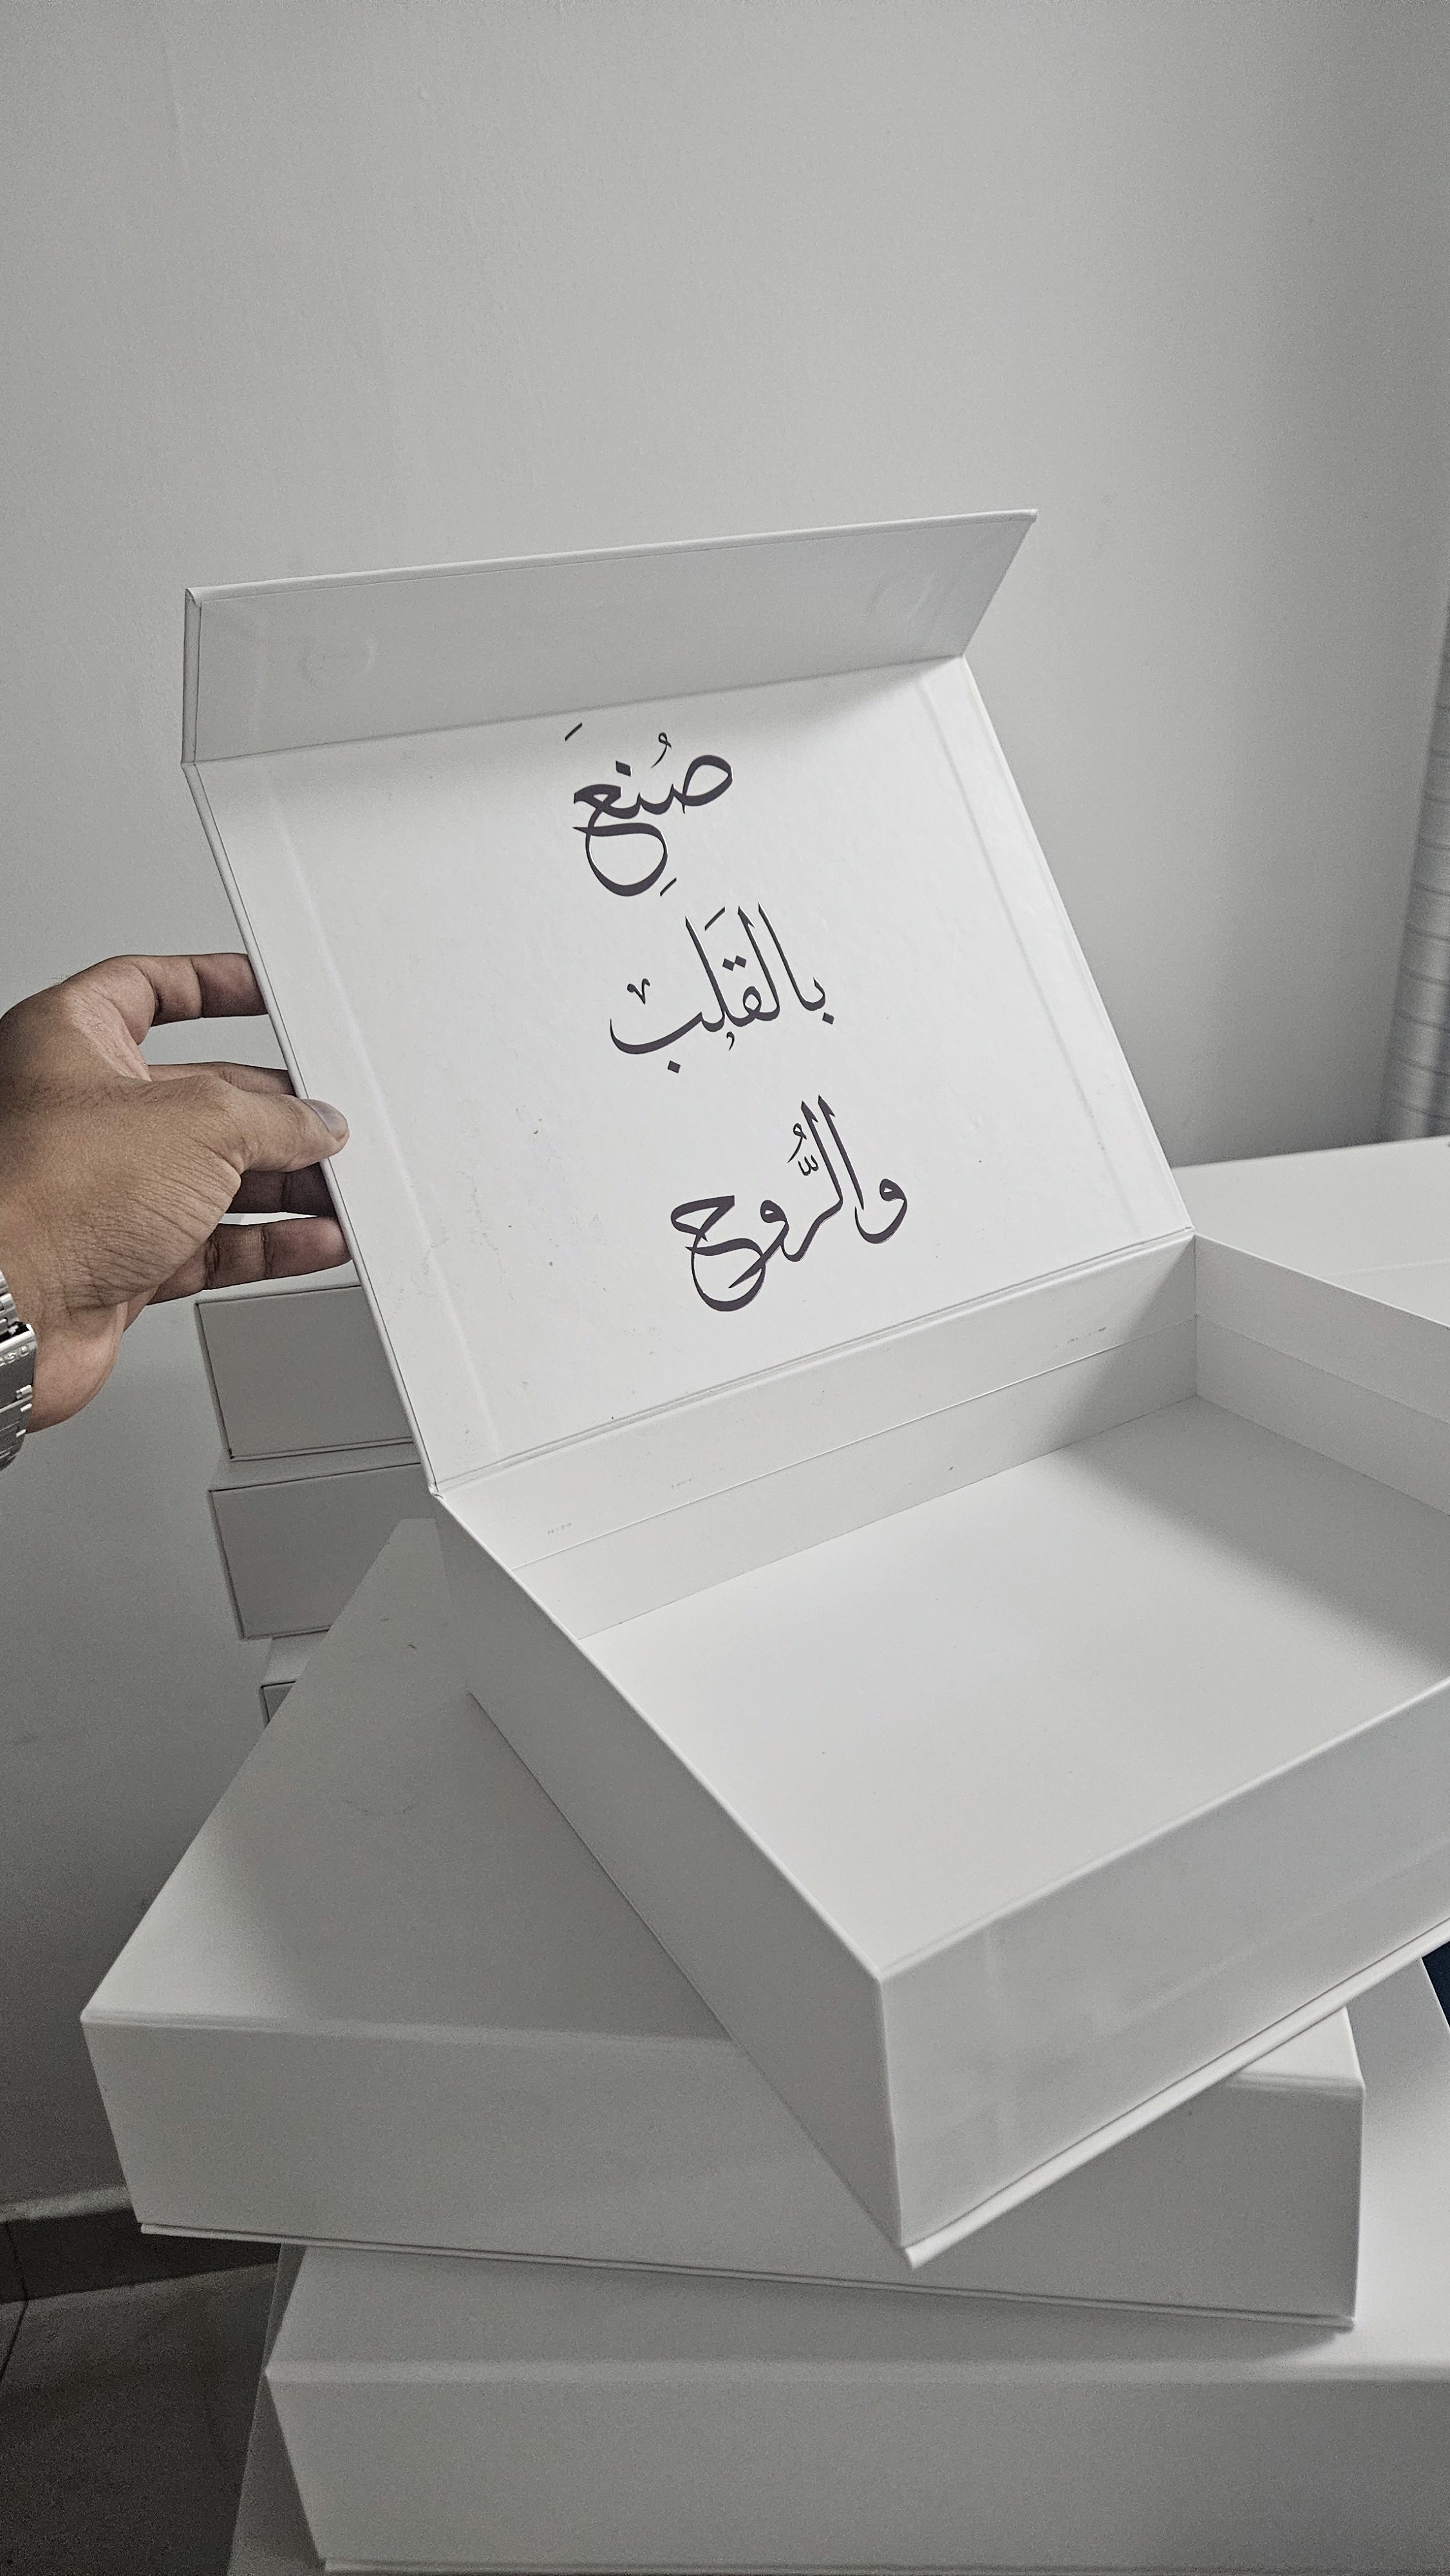 صُنعَِ
بالقَلب
والرُّوح